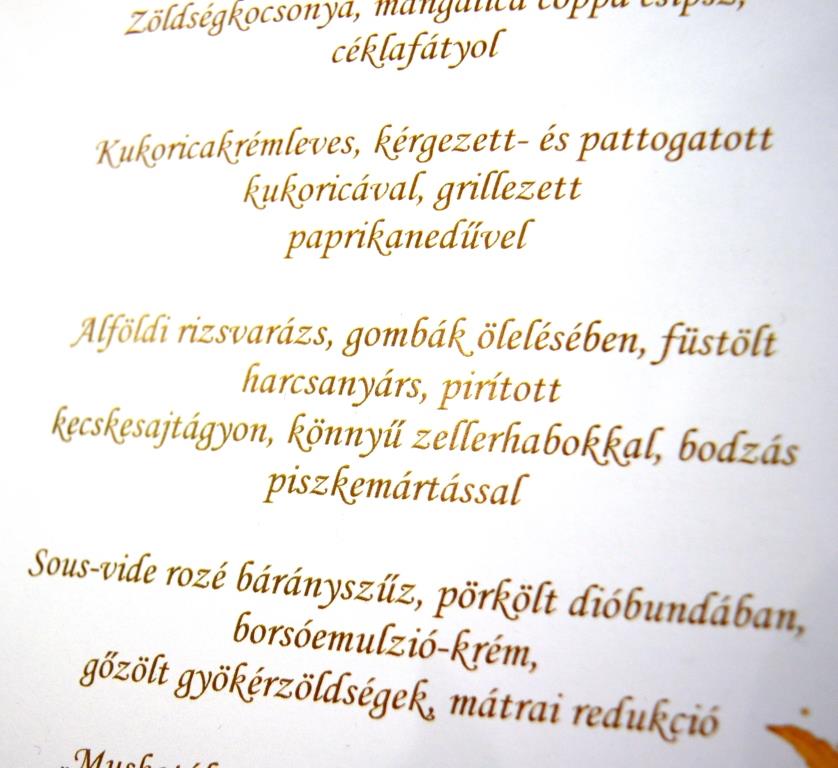 Zöldségkocsonya, mangalica coppa csipsz,
céklafátyol
Kukoricakrémleves, kérgezett- és pattogatott
kukoricával, grillezett
paprikanedűvel
Alföldi rizsvarázs, gombák ölelésében, füstölt
harcsanyárs, pirított
kecskesajtágyon, könnyű zellerhabokkal, bodzás
piszkemártással
Sous-vide rozé bárányszűz, pörkölt dióbundában,
borsóemulzió-krém,
gőzölt gyökérzöldségek, mátrai redukció